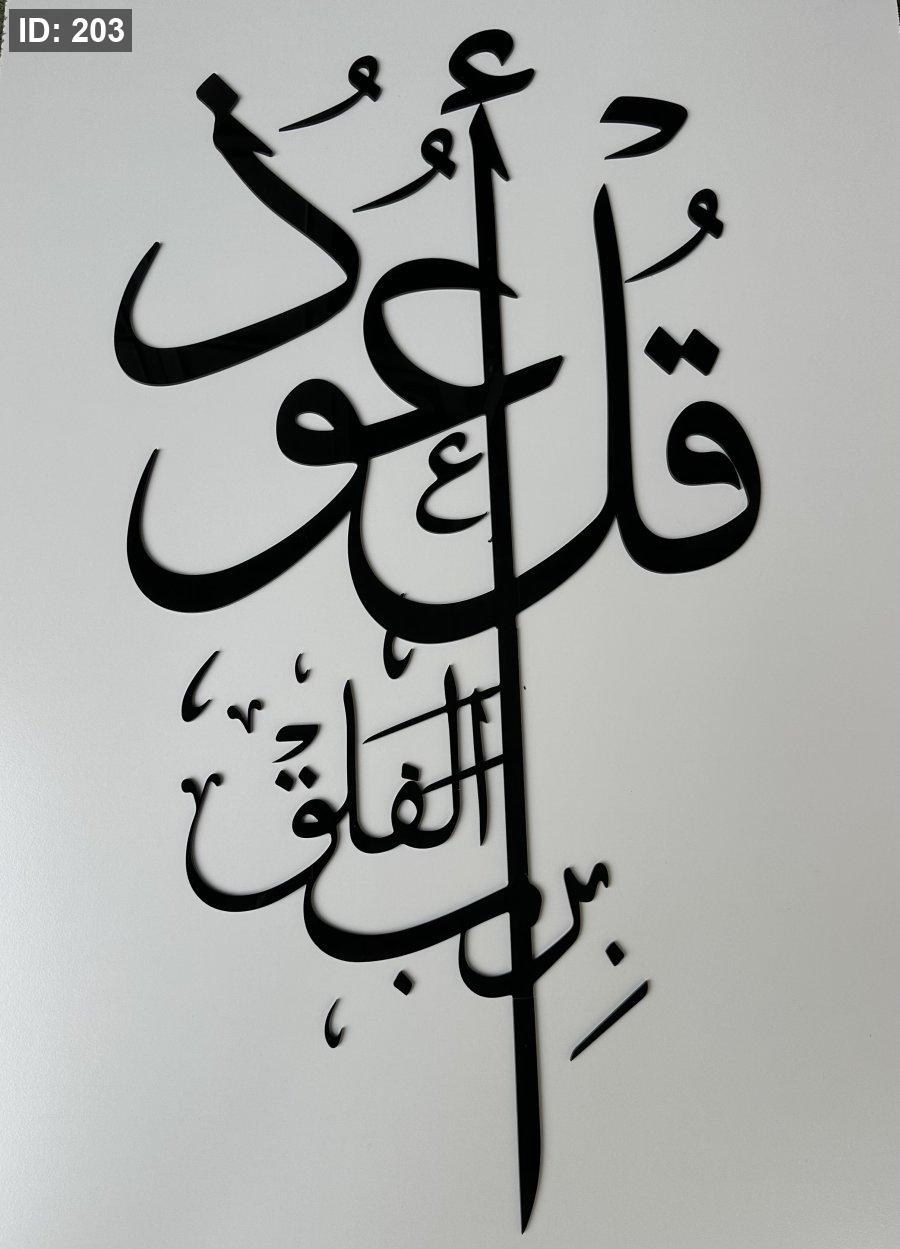 ID: 203
قُلْ أَعُوذُ
بِرَبِّ الْفَلَقِ